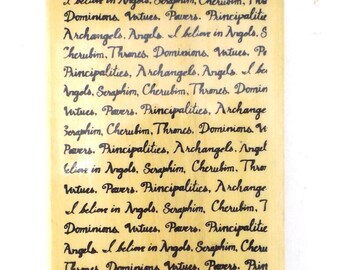 I believe in Angels, Seraphim, Cherubim,
Dominions. Virtues. Powers. Principalities
Archangels, Angels. I believe in Angels,
Cherubim, Thrones, Dominions, Virtues, P
Principalities, Archangels, Angels. I be
in Angels, Seraphim, Cherubim, Thrones.
Virtues, Powers. Principalities, Archange
Seraphim, Cherubim, Thrones. Dominions. Vi
Powers. Principalities, Archangels. Angel
believe in Angels, Seraphim, Cherubim, Thron
Virtues, Powers, Principalities, Archange
I believe in Angels, Seraphim, Cherubim, T
Dominions. Virtues. Powers. Principalitie
Angels. I believe in Angels, Seraphim, Cheru
Thrones, Dominions. Virtues. Powers. Prin